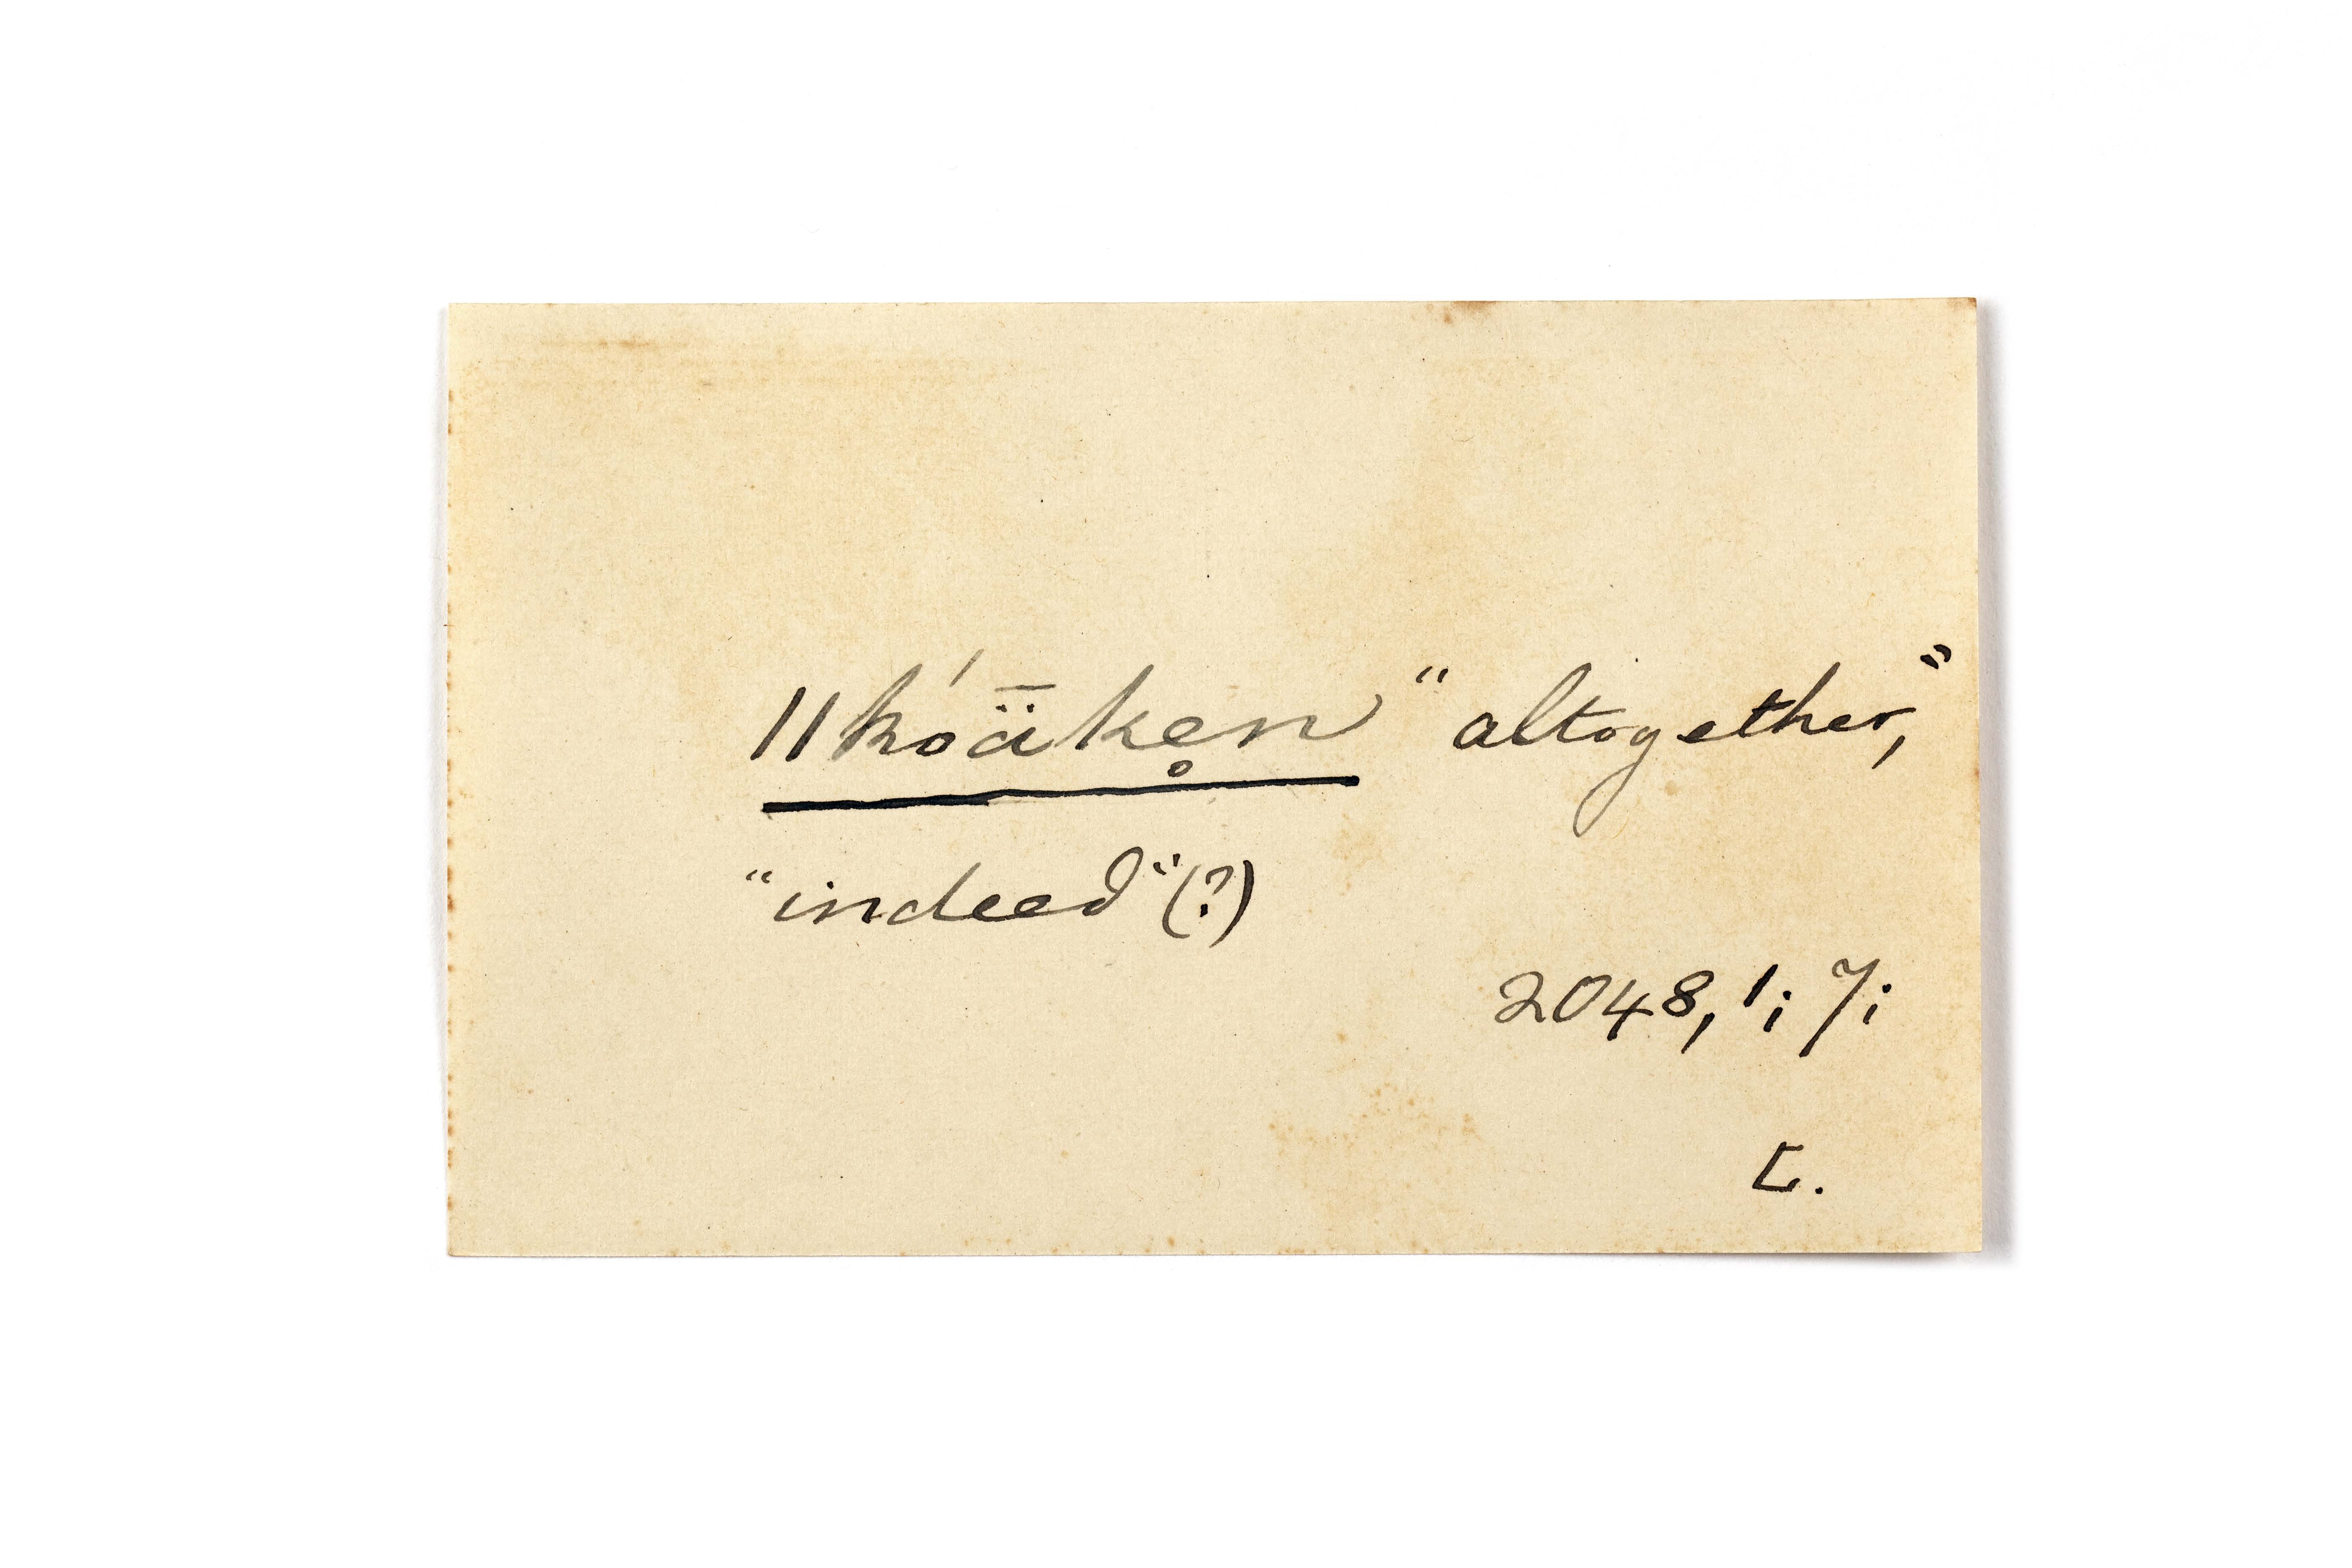 ǁkóǟken̥ "altogether,"
"indeed" (?)
2048, 1; 7;
L.